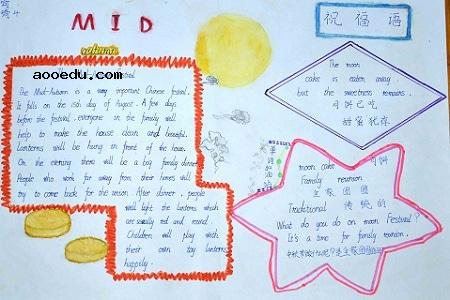 MID
autumn
祝福语
aooedu.com
Festival
The Mid-Autumn is a very important Chinese festival.
It falls on the 15th day of August. A few days
before the festival, everyone in the family will
help to make the house clean and beautiful.
Lanterns will be hung in front of the house.
On the evening there will be a big family dinner.
People who work far away from their homes will
try to come back for the union. After dinner, people
will light the lanterns which
are usually red and round.
Children will play with
their own toy lanterns
happily.
The moon
cake is eaten away
but the sweetness remains.
月饼已吃
甜蜜犹存
moon cake 月饼
Family reunion
全家团圆
Traditional 传统的
What do you do on moon Festival?
It's a time for family reunion.